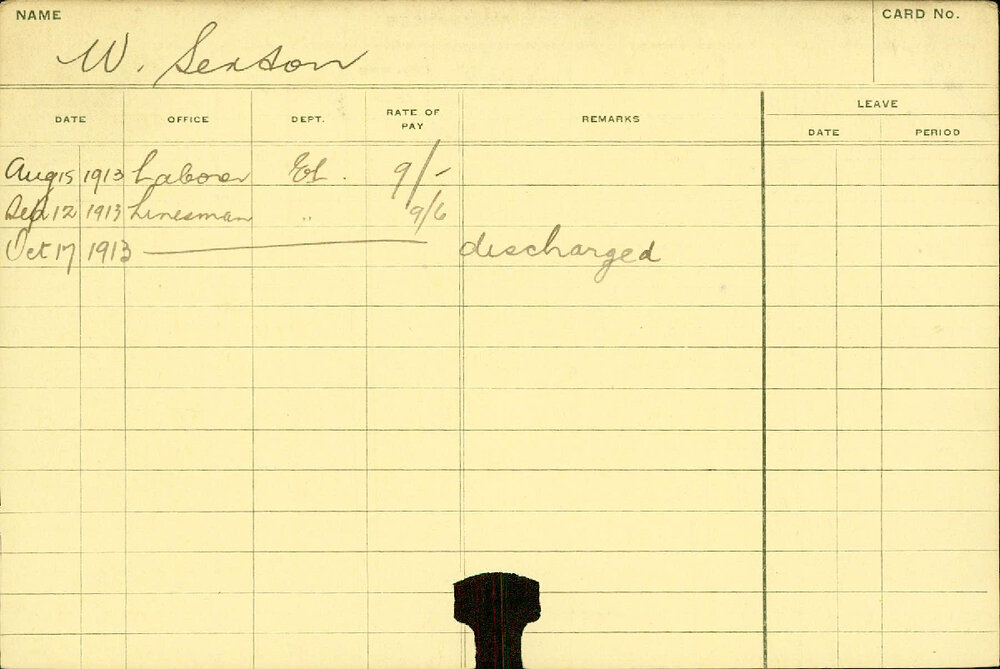 NAME CARD No.
W. Sexton
LEAVE
DATE OFFICE DEPT. RATE OF PAY REMARKS DATE PERIOD
Aug 15 1913 Laborer El. 9/-
Sep 12 1913 Linesman " 9/6
Oct 17 1913 discharged